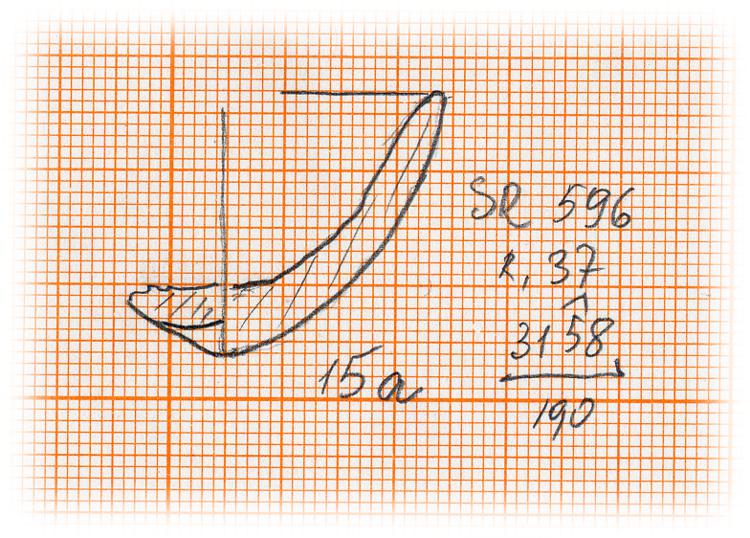 SR 596
R, 37
3158
190
15a